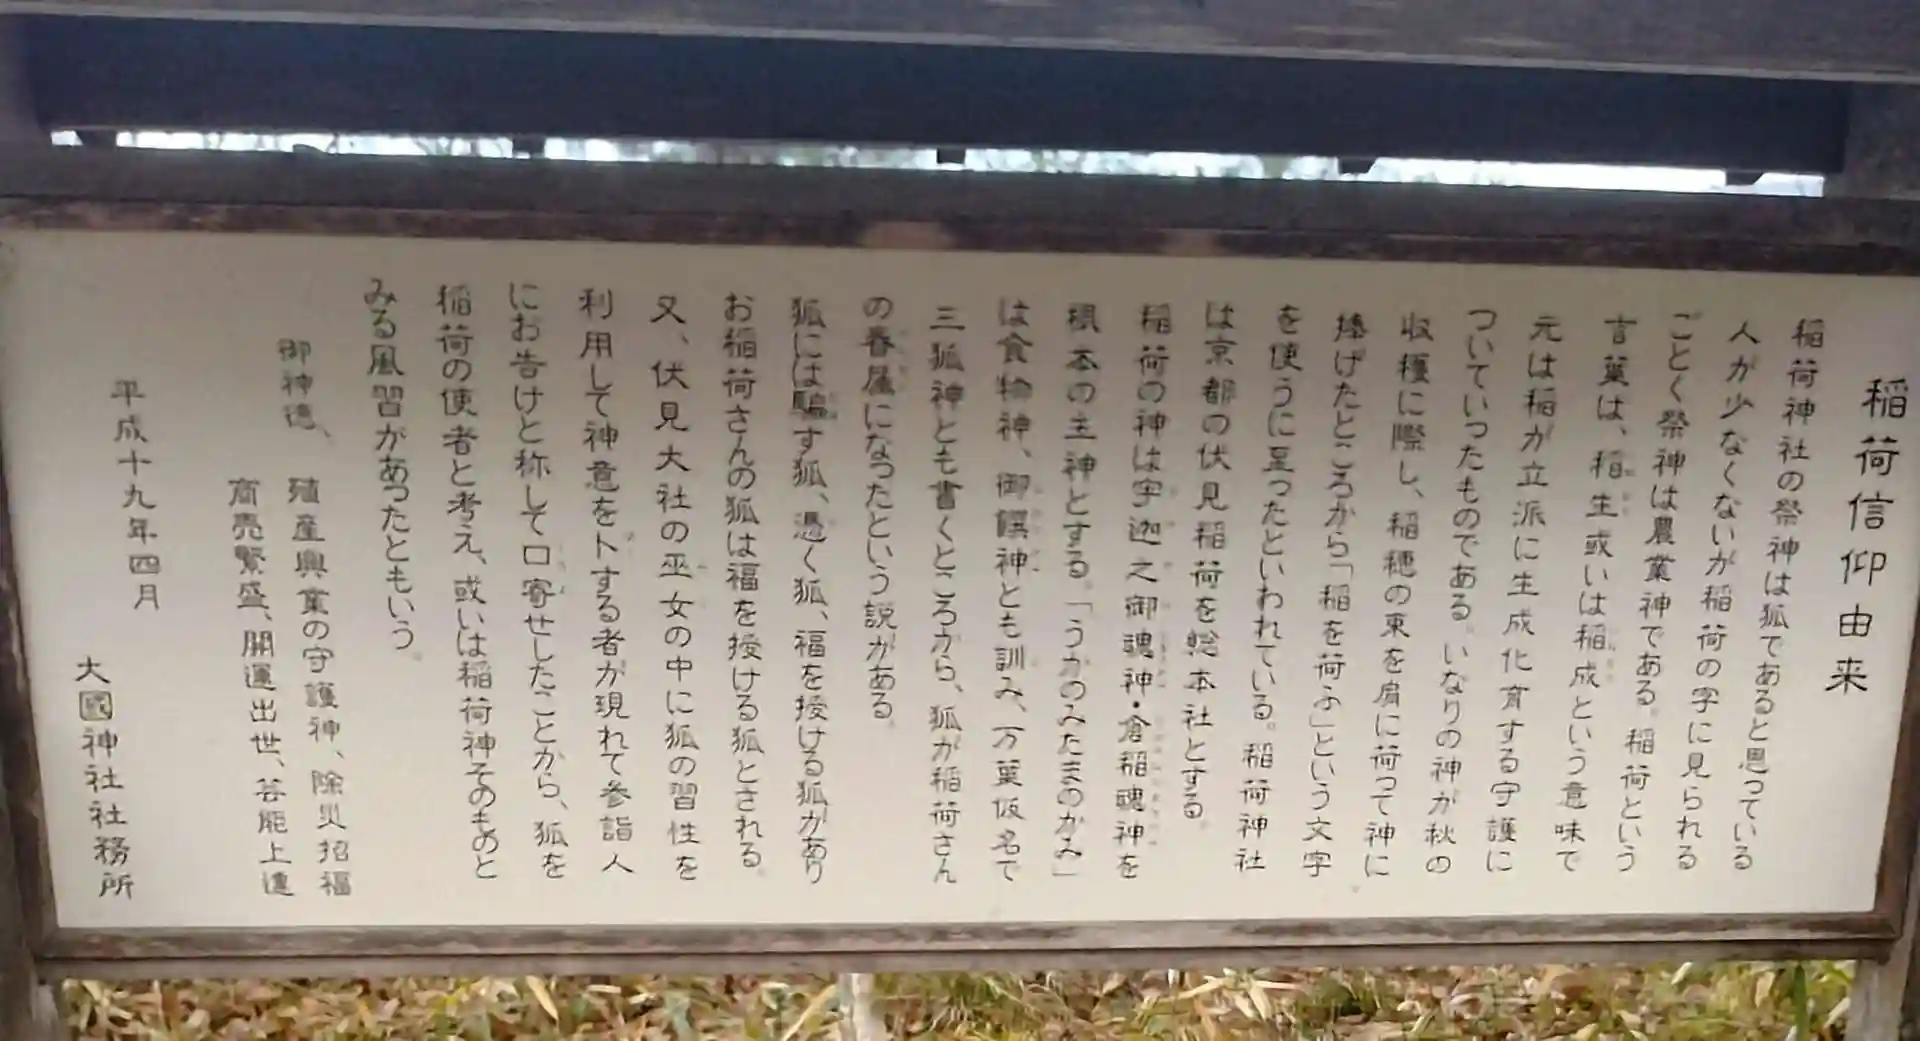 稲荷信仰由来
稲荷神社の祭神は狐であると思っている
人が少なくないが稲荷の字に見られる
ごとく祭神は農業神である。稲荷という
言葉は、稲生或いは稲成という意味で
元は稲が立派に生成化育する守護に
ついていったものである。いなりの神が秋の
収穫に際し、稲穂の束を肩に荷って神に
捧げたところから「稲を荷ふ」という文字
を使うに至ったといわれている。稲荷神社
は京都の伏見稲荷を総本社とする。
稲荷の神は宇迦之御魂神・倉稲魂神を
根本の主神とする。「うかのみたまのかみ」
は食物神、御饌神とも訓み、万葉仮名で
三狐神とも書くところから、狐が稲荷さん
の眷属になったという説がある。
狐には騙す狐、憑く狐、福を授ける狐があり
お稲荷さんの狐は福を授ける狐とされる。
又、伏見大社の巫女の中に狐の習性を
利用して神意を卜する者が現れて参詣人
にお告けと称して口寄せしたことから、狐を
稲荷の使者と考え、或いは稲荷神そのものと
みる風習があったともいう。
御神徳、殖産興業の守護神、除災招福
商売繁盛、開運出世、芸能上達
平成十九年四月
大國神社社務所